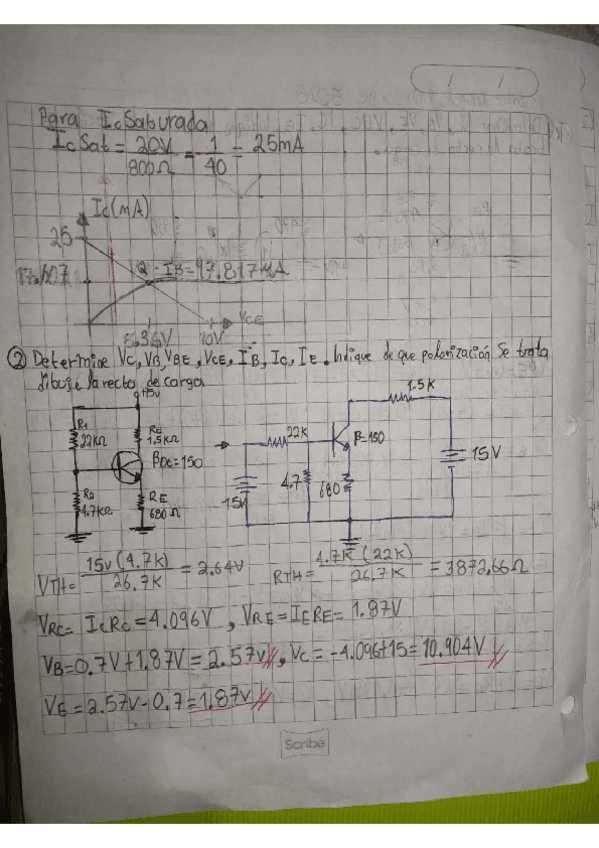 / /
Para IcSaturada
IcSat = 20V/800Ω = 1/40 = 25mA
Ic(mA)
25
Q - IB=47.817μA
VCE
② Determine VC, VB, VBE, VCE, IB, IC, IE. Indique de que polarización Se trata
dibuje la recta de carga
+15v
R1
22KΩ
Rc
1,5KΩ
βDC=150
R2
4.7KΩ
RE
680Ω
22K
4.7
15V
β=150
680
1.5K
15V
VTH= 15v(4.7K)/26.7K = 2.64V
RTH= 4.7K(22K)/26,7K = 3872,66Ω
VRC= IcRc=4.096V, VRE=IERE= 1.87V
VB=0.7V+1.87V=2.57V//, VC= -4.096+15=10.904V//
VE=2.57V-0.7=1.87V//
Scribe